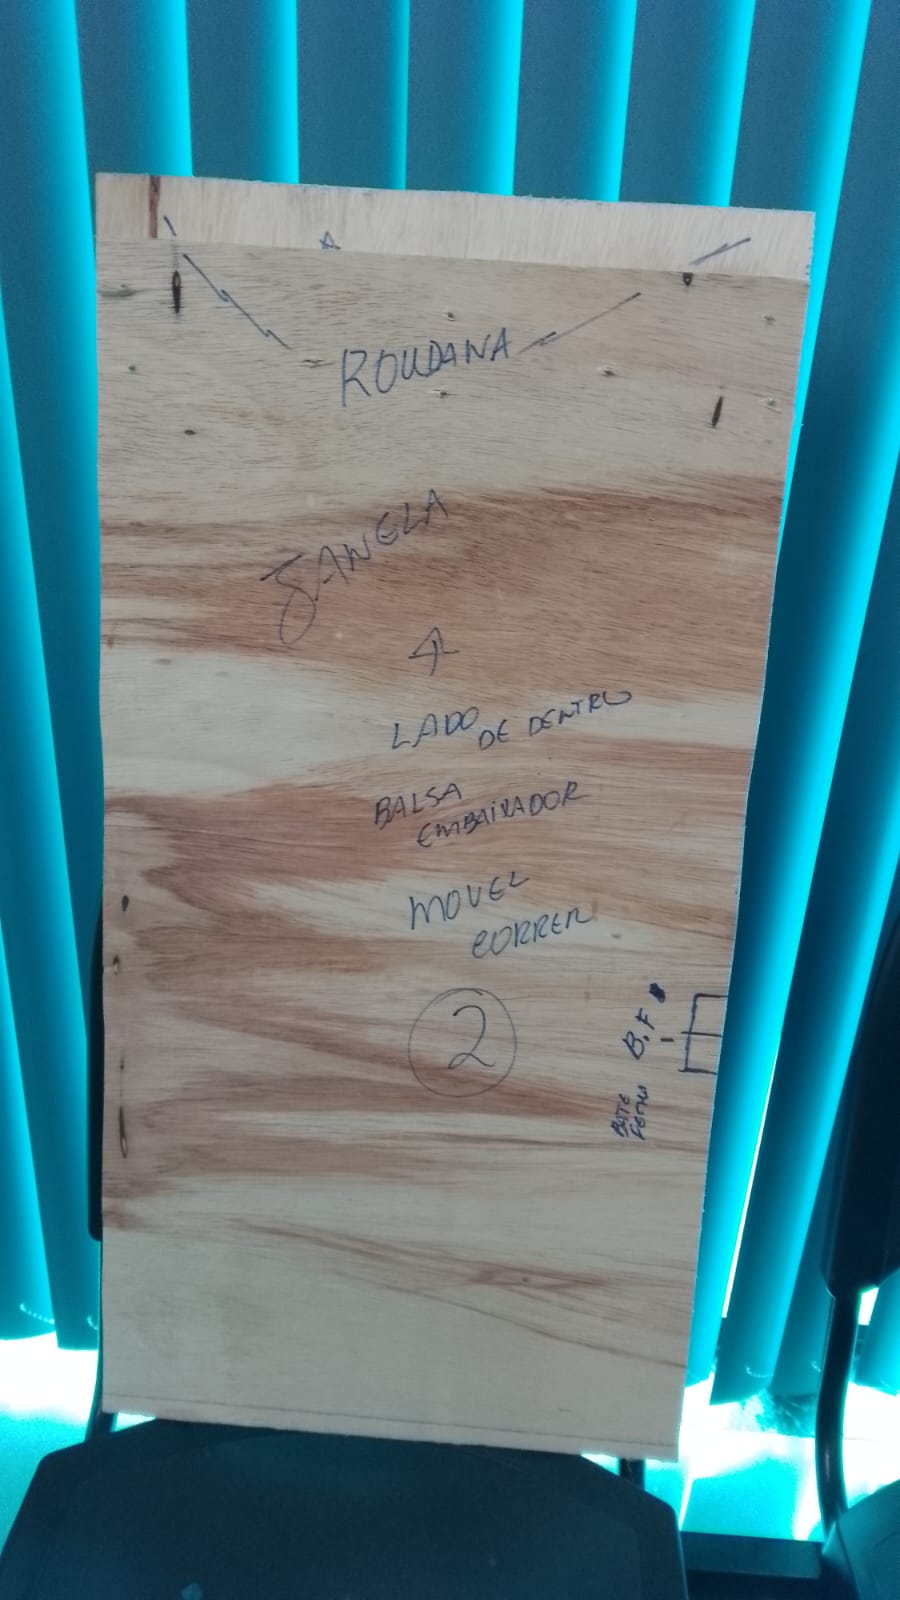 A
ROUDANA
JANELA
LADO DE DENTRO
BALSA
EMBAIXADOR
MOVEL
CORRER
2
B.F
BATE
FECHA